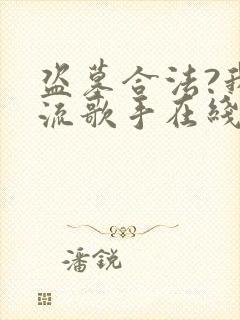 盗墓合法?我
流歌手在线
潘锐